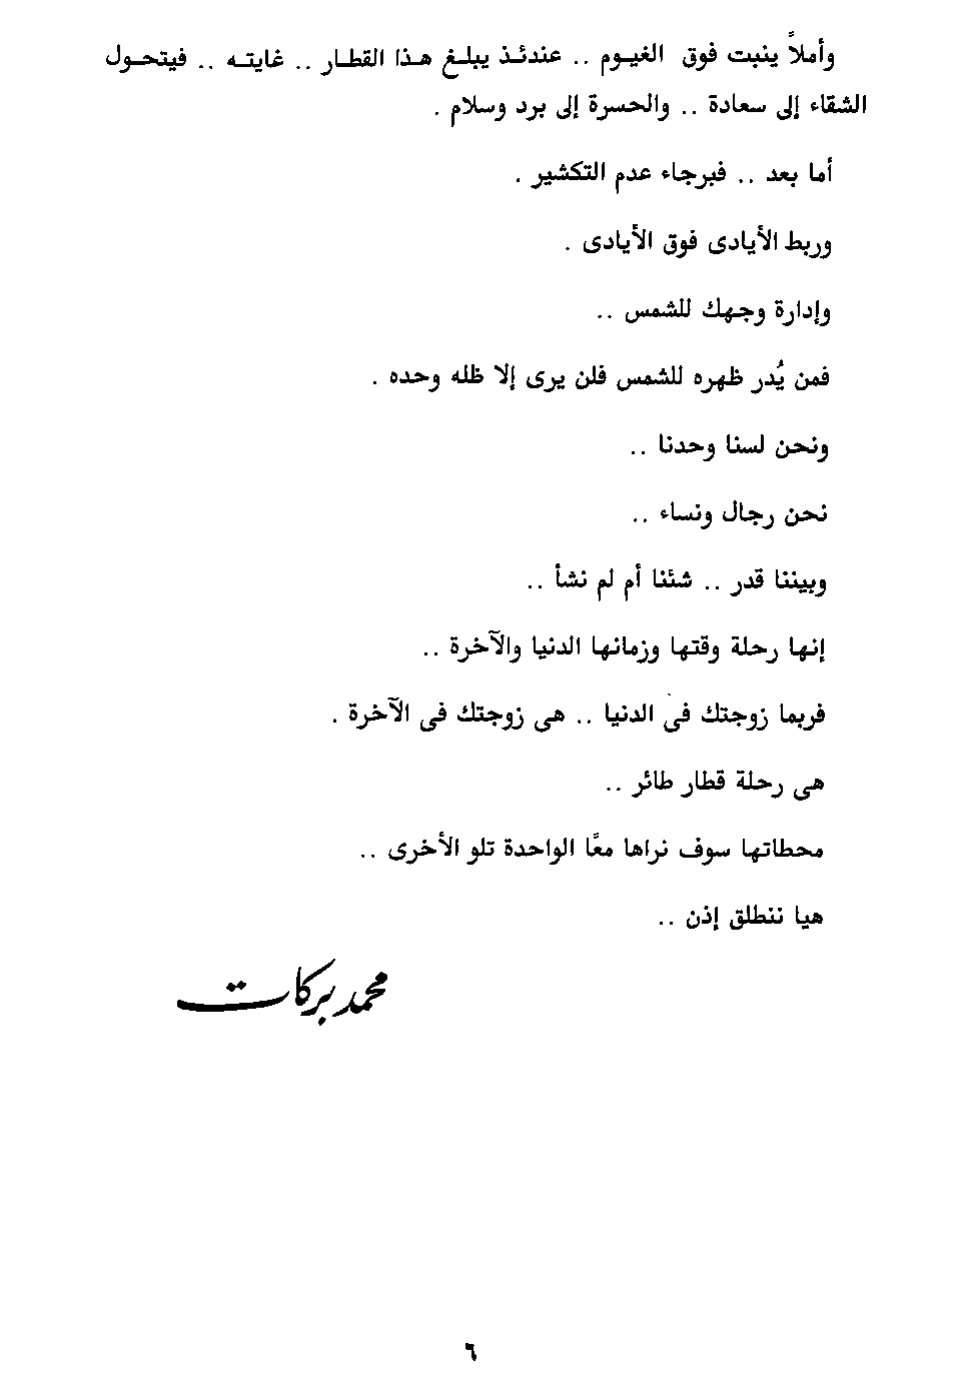 وأملاً ينبت فوق الغيوم .. عندئذ يبلغ هذا القطار .. غايته .. فيتحول
الشقاء إلى سعادة .. والحسرة إلى برد وسلام .
أما بعد .. فبرجاء عدم التكشير .
وربط الأيادى فوق الأيادى .
وإدارة وجهك للشمس ..
فمن يُدر ظهره للشمس فلن يرى إلا ظله وحده .
ونحن لسنا وحدنا ..
نحن رجال ونساء ..
وبيننا قدر .. شئنا أم لم نشأ ..
إنها رحلة وقتها وزمانها الدنيا والآخرة ..
فربما زوجتك فى الدنيا .. هى زوجتك فى الآخرة .
هى رحلة قطار طائر ..
محطاتها سوف نراها معًا الواحدة تلو الأخرى ..
هيا ننطلق إذن ..
محمد بركات
٦